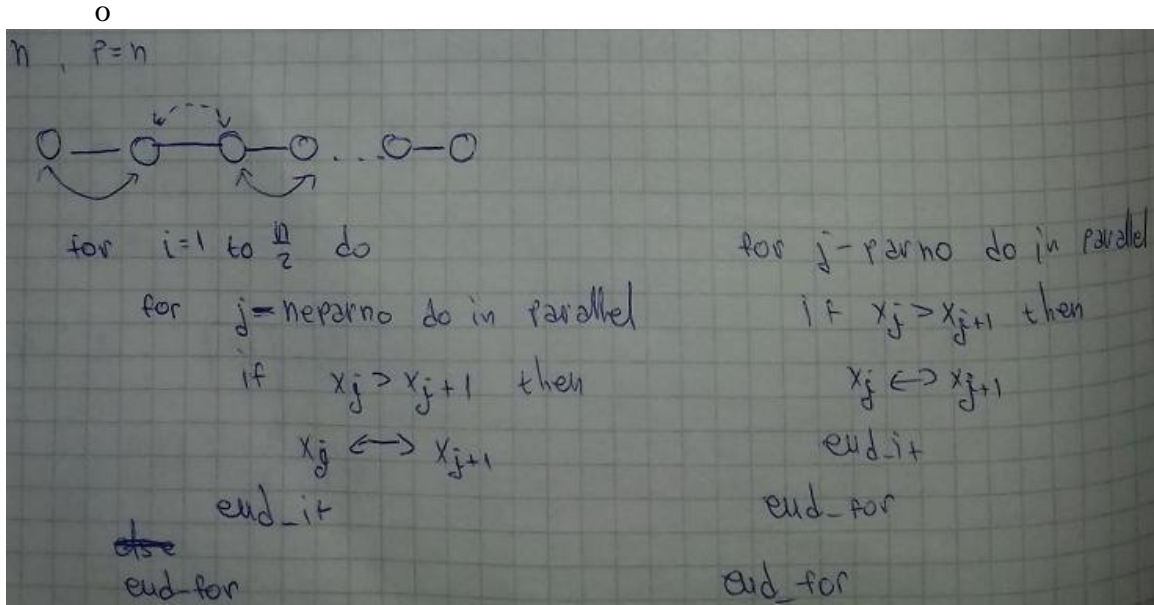 o
n, P=n
for i=1 to n/2 do
for j-neparno do in parallel
if xj > xj+1 then
xj <-> xj+1
end_if
else
end-for
for j-parno do in parallel
if xj > xj+1 then
xj <-> xj+1
end_if
end-for
end_for